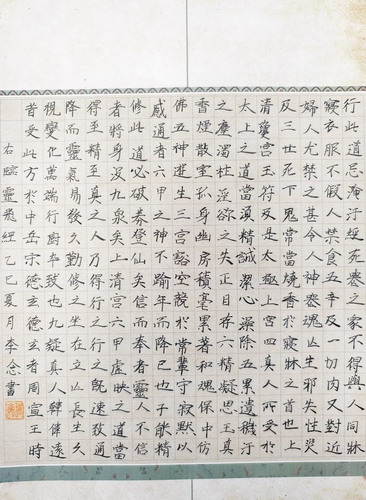 行此道忌淹汙經死喪之家不得與人同牀
寢衣服不假人禁食五辛及一切肉又對近
婦人尤禁之甚令人神喪魂亡生邪失性災
及三世死下鬼常當燒香於寢牀之首也上
清瓊宮玉符乃是太極上宮四真人所受於
太上之道當須精誠潔心澡除五累遺穢汙
之塵濁杜淫欲之失正目存六精凝思玉真
香煙散室孤身幽房積毫累著和魂保中仿
佛五神遊生三宮豁空競於常輩守寂默以
感通者六甲之神不踰年而降已也子能精
修此道必破券登仙矣信而奉者靈人不信
者將身沒九泉矣上清六甲虛映之道當
得至精至真之人乃得行之行之既速致通
降而靈氣易發久勤修之坐在立亡長生久
視變化萬端行廚卒致也九疑真人韓偉遠
昔受此方於中岳宋德玄德玄者周宣王時
右臨靈飛經乙巳夏月李念書